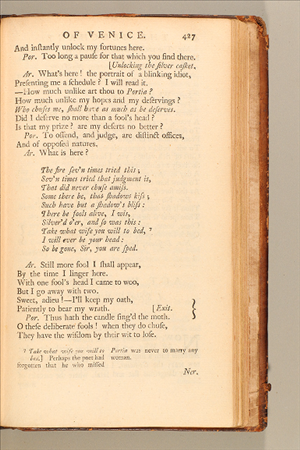 OF VENICE. 427
And inſtantly unlock my fortunes here.
Por. Too long a pauſe for that which you find there.
[Unlocking the ſilver caſket.
Ar. What's here! the portrait of a blinking idiot,
Preſenting me a ſchedule? I will read it.
—How much unlike art thou to Portia?
How much unlike my hopes and my deſervings?
Who chuſes me, ſhall have as much as he deſerves.
Did I deſerve no more than a fool's head?
Is that my prize? are my deſerts no better?
Por. To offend, and judge, are diſtinct offices,
And of oppoſed natures.
Ar. What is here?
The fire ſev'n times tried this;
Sev'n times tried that judgment is,
That did never chuſe amiſs.
Some there be, that ſhadows kiſs;
Such have but a ſhadow's bliſs:
There be fools alive, I wis,
Silver'd o'er, and ſo was this:
Take what wife you will to bed, ?
I will ever be your head:
So be gone, Sir, you are ſped.
Ar. Still more fool I ſhall appear,
By the time I linger here.
With one fool's head I came to woo,
But I go away with two.
Sweet, adieu!—I'll keep my oath,
Patiently to bear my wrath. [Exit.
Por. Thus hath the candle ſing'd the moth.
O theſe deliberate fools! when they do chuſe,
They have the wiſdom by their wit to loſe.
? Take what wife you will to
bed.] Perhaps the poet had
forgotten that he who miſſed
Portia was never to marry any
woman.
Ner.